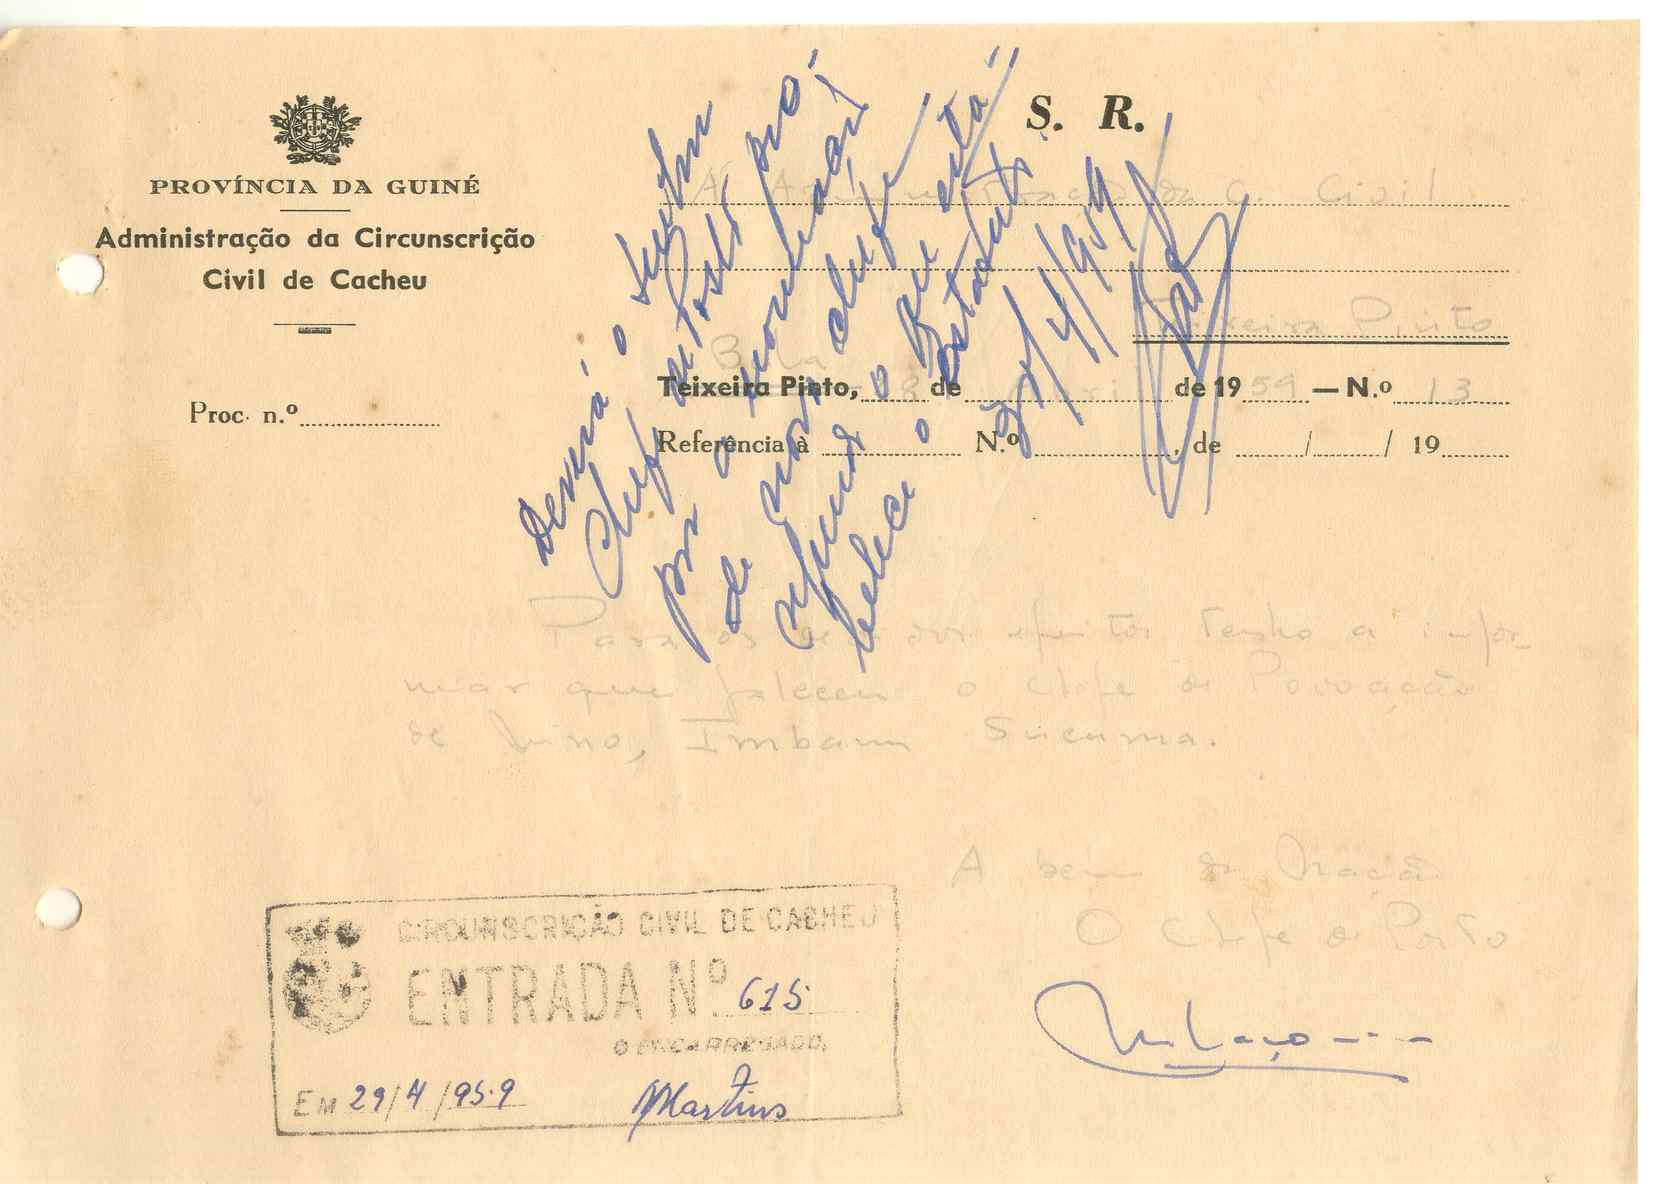 S. R.
PROVÍNCIA DA GUINÉ
Administração da Circunscrição
Civil de Cacheu
Proc. n.º
À Administração da C. Civil
Teixeira Pinto
Bula
Teixeira Pinto, 28 de Abril de 1959 — N.º 13
Referência à N.º , de / / 19
Deverá o senhor
Chefe de Posto pro-
por a nomeação
de novo chefe
o que esta-
belece o Estatuto
/4/959
Para os devidos efeitos tenho a infor-
mar que faleceu o Chefe de Povoação
de , Imbann Sucuma.
A bem da Nação
O Chefe de Posto
CIRCUNSCRIÇÃO CIVIL DE CACHEU
ENTRADA Nº 615
O ENCARREGADO,
EM 29/4/959 Martins